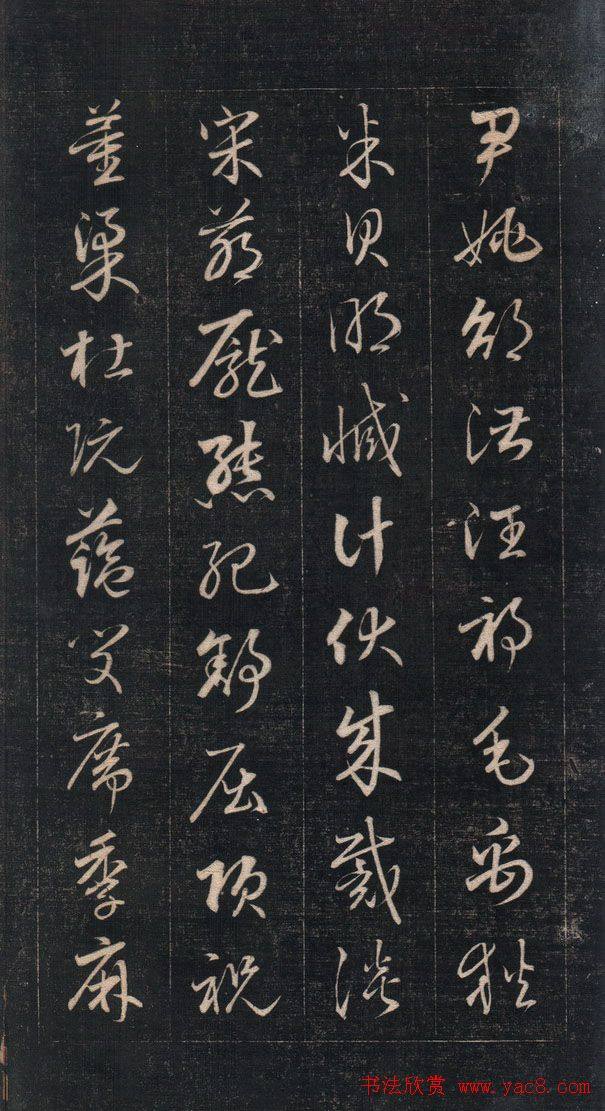 尹姚邵湛汪祁毛禹狄
米貝明臧計伏成戴談
宋茅龐熊紀舒屈項祝
董梁杜阮藍閔席季麻
书法欣赏 www.yac8.com